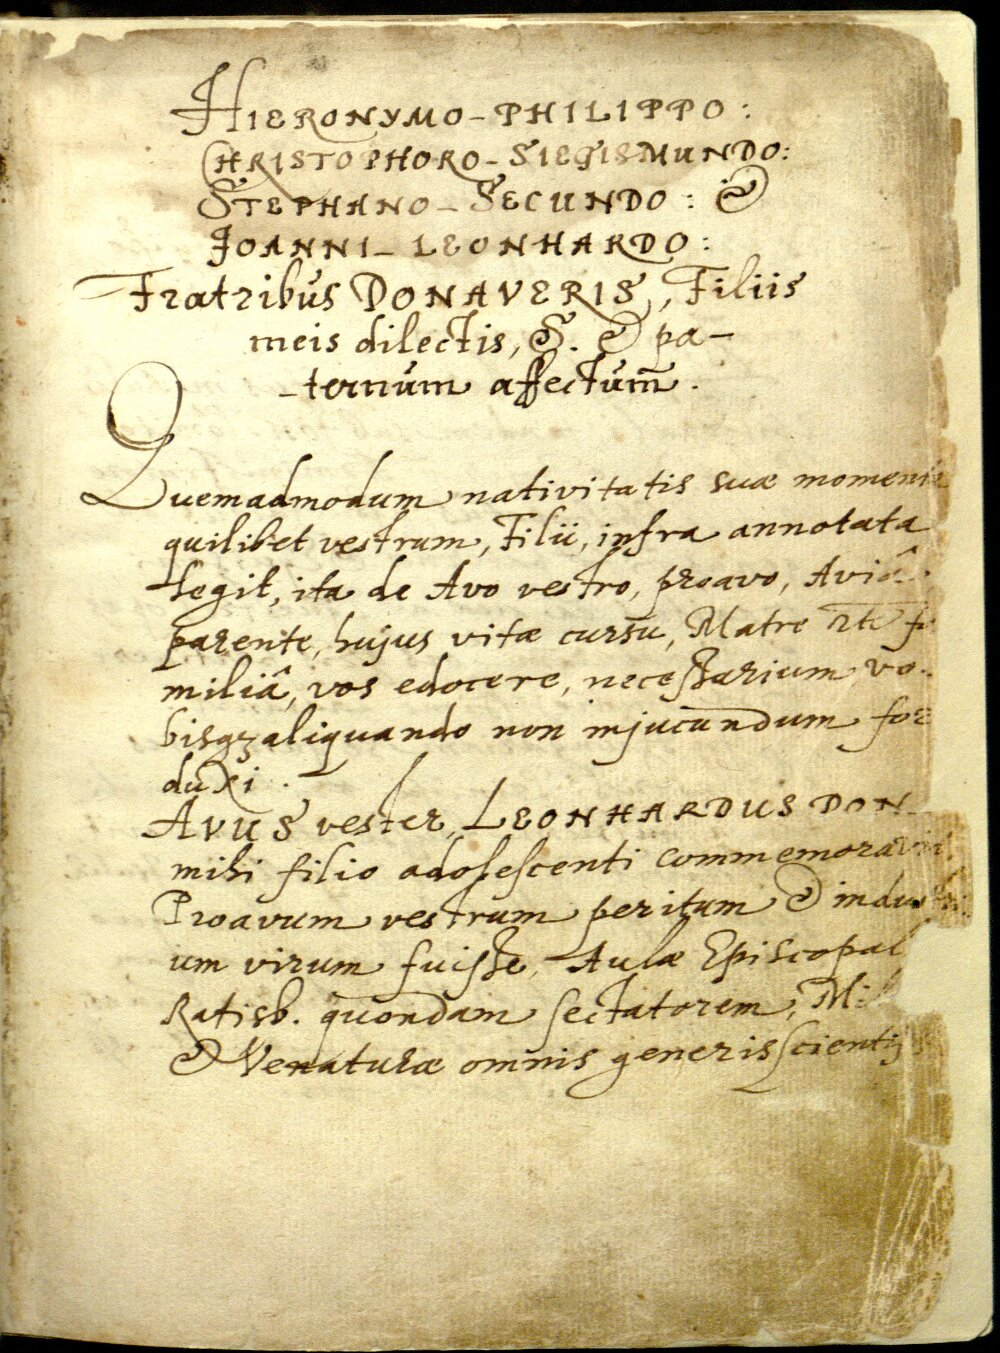 HIERONYMO-PHILIPPO:
CHRISTOPHORO-SIEGISMUNDO:
STEPHANO-SECUNDO: &
JOANNI-LEONHARDO:
Fratribus DONAVERIS, Filiis
meis dilectis, S. & pa-
-ternum affectum̄.
Quemadmodum nativitatis suæ
quilibet vestrum, Filii, infra annotata
legit, ita de Avo vestro, proavo,
parente, hujus vitæ cursu, Matre
miliâ, vos edocere, necessarium vo-
bisqꝫ aliquando non injucundum
duxi.
AVUS vester, LEONHARDUS DON
mihi filio adolescenti
Proavum vestrum peritum &
um virum fuisse, Aulæ
Ratisb. quondam sectatorem,
& Venaturæ omnis generis